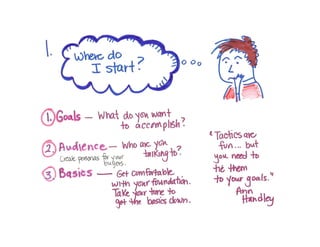 1.
Where do
I start?
1. Goals — What do you want
to accomplish?
2. Audience — Who are you
talking to?
Create personas for your
buyers.
3. Basics — Get comfortable
with your foundation.
Take your time to
get the basics down.
"Tactics are
fun... but
you need to
tie them
to your goals."
Ann
Handley